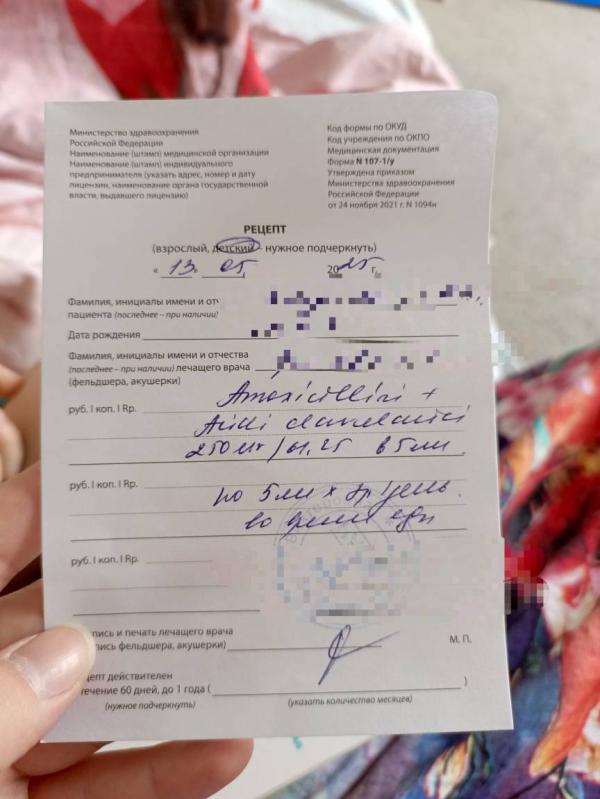 Министерство здравоохранения
Российской Федерации
Наименование (штамп) медицинской организации
Наименование (штамп) индивидуального
предпринимателя (указать адрес, номер и дату
лицензии, наименование органа государственной
власти, выдавшего лицензию)
Код формы по ОКУД
Код учреждения по ОКПО
Медицинская документация
Форма N 107-1/у
Утверждена приказом
Министерства здравоохранения
Российской Федерации
от 24 ноября 2021 г. N 1094н
РЕЦЕПТ
(взрослый, детский – нужное подчеркнуть)
« 13 » 05 2025 г.
Фамилия, инициалы имени и
пациента (последнее – при наличии)
Дата рождения
Фамилия, инициалы имени и отчества
(последнее – при наличии) лечащего врача
(фельдшера, акушерки)
руб. I коп. I Rp. Amoxicillini +
Acidi clavulanici
250мг / 61,25 в 5мл
руб. I коп. I Rp. по 5мл х
во время еды
руб. I коп. I Rp.
пись и печать лечащего врача
пись фельдшера, акушерки) М. П.
цепт действителен
течение 60 дней, до 1 года ( )
(нужное подчеркнуть) (указать количество месяцев)